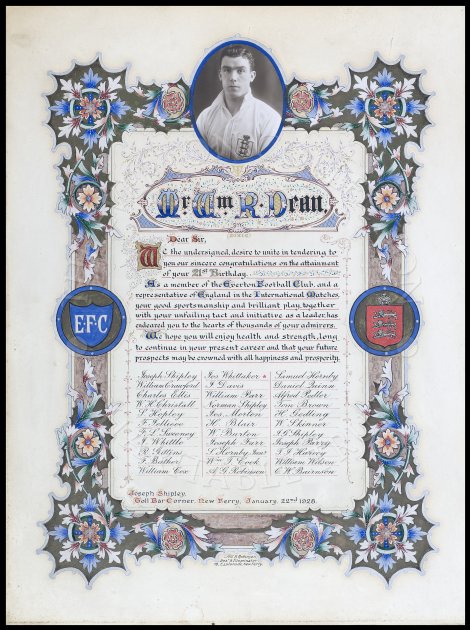 Mr. Wm. R. Dean.
Dear Sir,
We the undersigned, desire to unite in tendering to
you our sincere congratulations on the attainment
of your 21st Birthday.
As a member of the Everton Football Club, and a
representative of England in the International Matches,
your good sportsmanship and brilliant play, together
with your unfailing tact and initiative as a leader, has
endeared you to the hearts of thousands of your admirers.
We hope you will enjoy health and strength, long
to continue in your present career and that your future
prospects may be crowned with all happiness and prosperity.
E.F.C
Joseph Shipley Jos Whittaker Samuel Hornby
William Crawford J Davis Daniel Quinn
Charles Ellis William Parr Alfred Pedler
W. H. Christall Norman Shipley Tom Brown
Hopley Jos Morton H. Gedling
H. Blair W. Skinner
Sweeney W Burton Shipley
Whittle Joseph Parr Joseph Parry
R. Gittins S Hornby Junr Harvey
Wm Cook William Wilson
William Cox A. G. Robinson C. W. Bairnson
Joseph Shipley,
Toll Bar Corner, New Ferry, January, 22nd 1928.